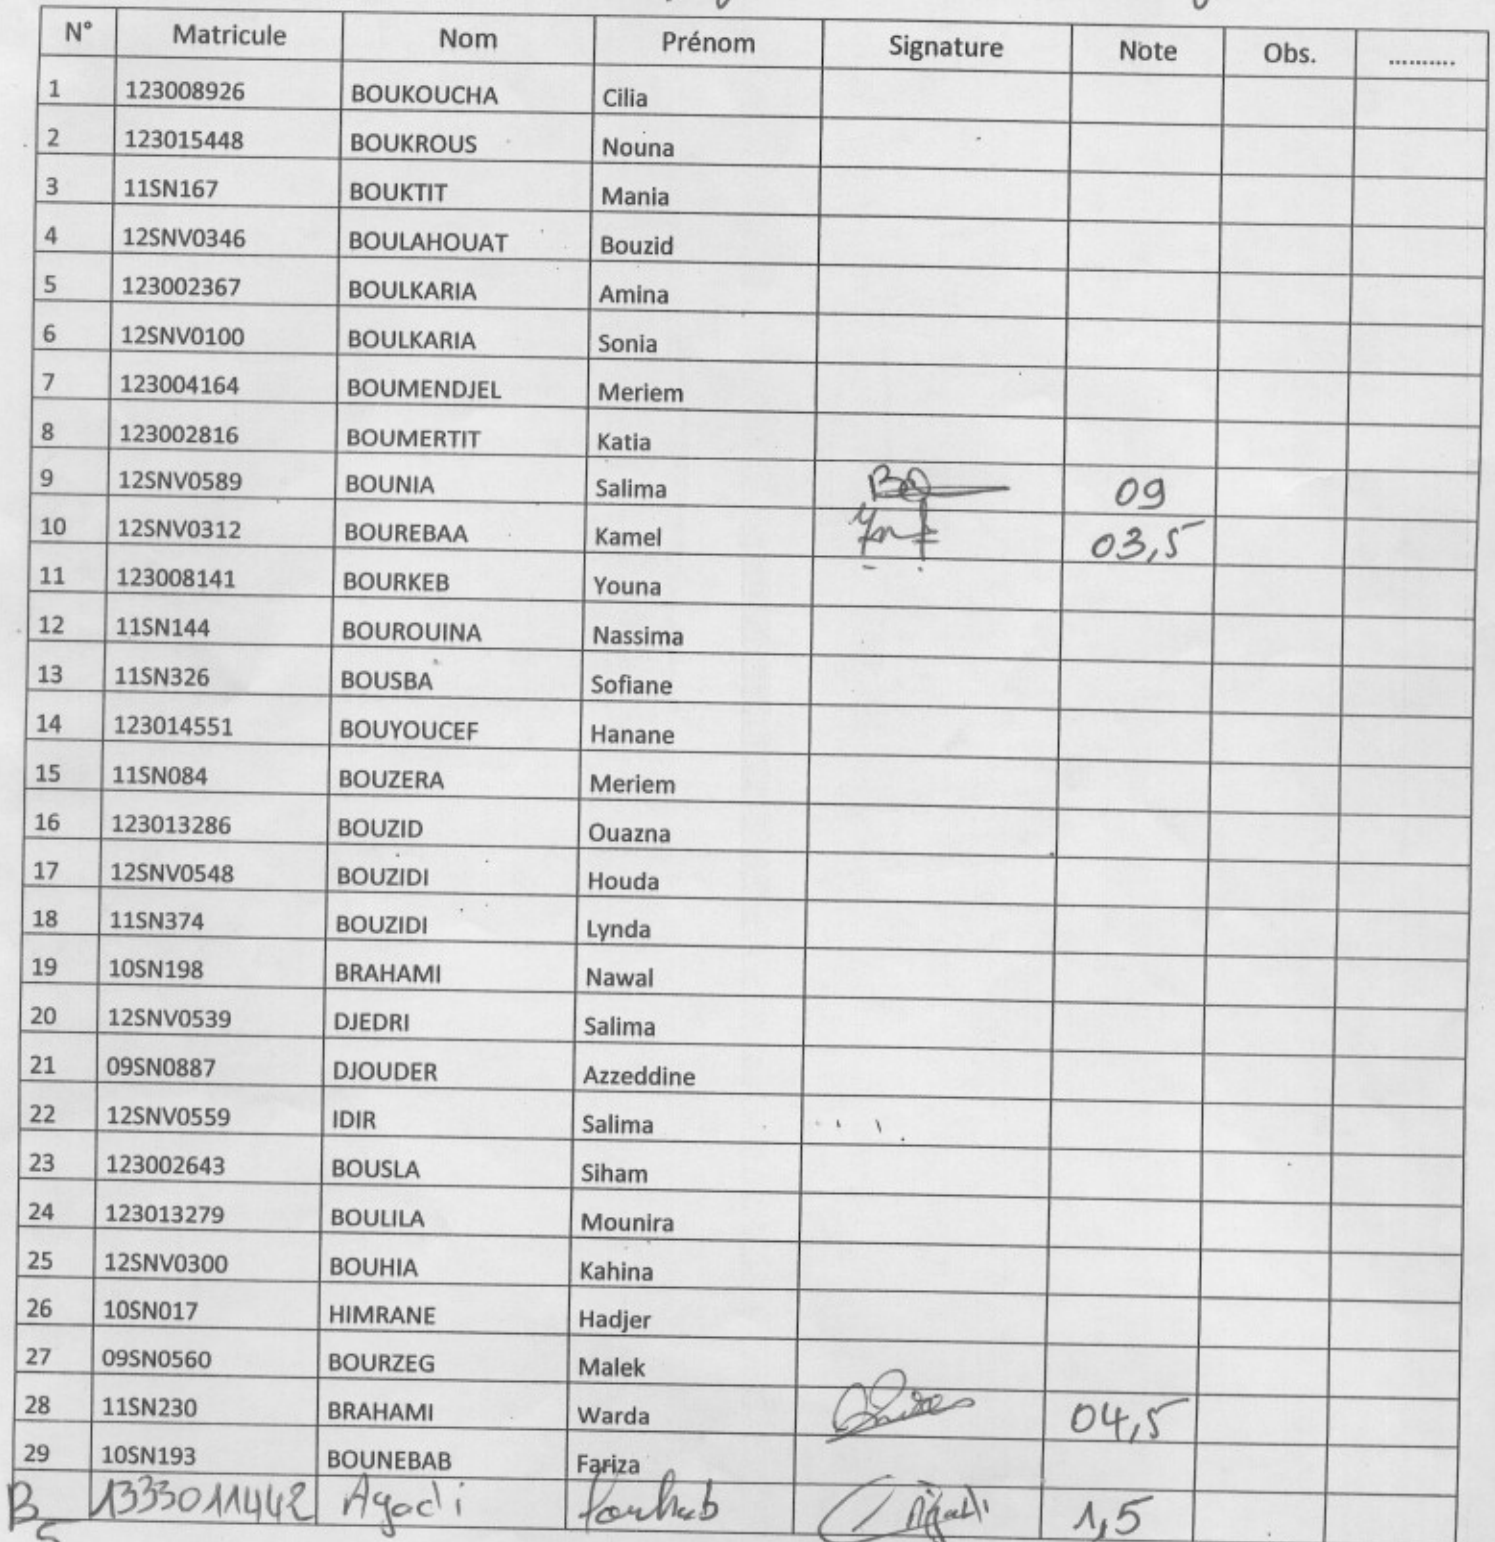 N° Matricule Nom Prénom Signature Note Obs. ..........
1 123008926 BOUKOUCHA Cilia
2 123015448 BOUKROUS Nouna
3 11SN167 BOUKTIT Mania
4 12SNV0346 BOULAHOUAT Bouzid
5 123002367 BOULKARIA Amina
6 12SNV0100 BOULKARIA Sonia
7 123004164 BOUMENDJEL Meriem
8 123002816 BOUMERTIT Katia
9 12SNV0589 BOUNIA Salima 09
10 12SNV0312 BOUREBAA Kamel 03,5
11 123008141 BOURKEB Youna
12 11SN144 BOUROUINA Nassima
13 11SN326 BOUSBA Sofiane
14 123014551 BOUYOUCEF Hanane
15 11SN084 BOUZERA Meriem
16 123013286 BOUZID Ouazna
17 12SNV0548 BOUZIDI Houda
18 11SN374 BOUZIDI Lynda
19 10SN198 BRAHAMI Nawal
20 12SNV0539 DJEDRI Salima
21 09SN0887 DJOUDER Azzeddine
22 12SNV0559 IDIR Salima
23 123002643 BOUSLA Siham
24 123013279 BOULILA Mounira
25 12SNV0300 BOUHIA Kahina
26 10SN017 HIMRANE Hadjer
27 09SN0560 BOURZEG Malek
28 11SN230 BRAHAMI Warda 04,5
29 10SN193 BOUNEBAB Fariza
B 1333011442 Agadi Agadi 1,5